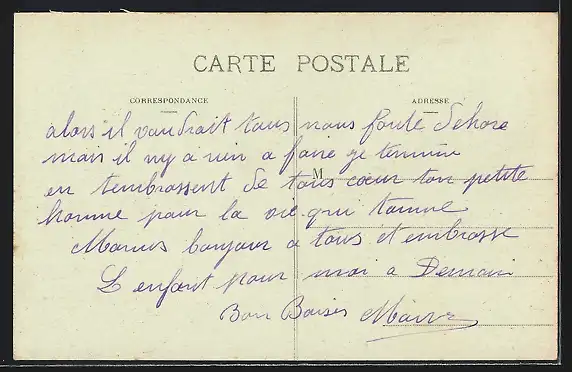 CARTE POSTALE
CORRESPONDANCE
ADRESSE
M
alors il vaudrait tous nous foute dehore
mais il ny a rien a faire je termine
en tembrassent de tous cœur ton petite
homme pour la vie qui taime
Marius bonjour a tous et embrasse
L enfant pour moi a Demain
Bon Baiser